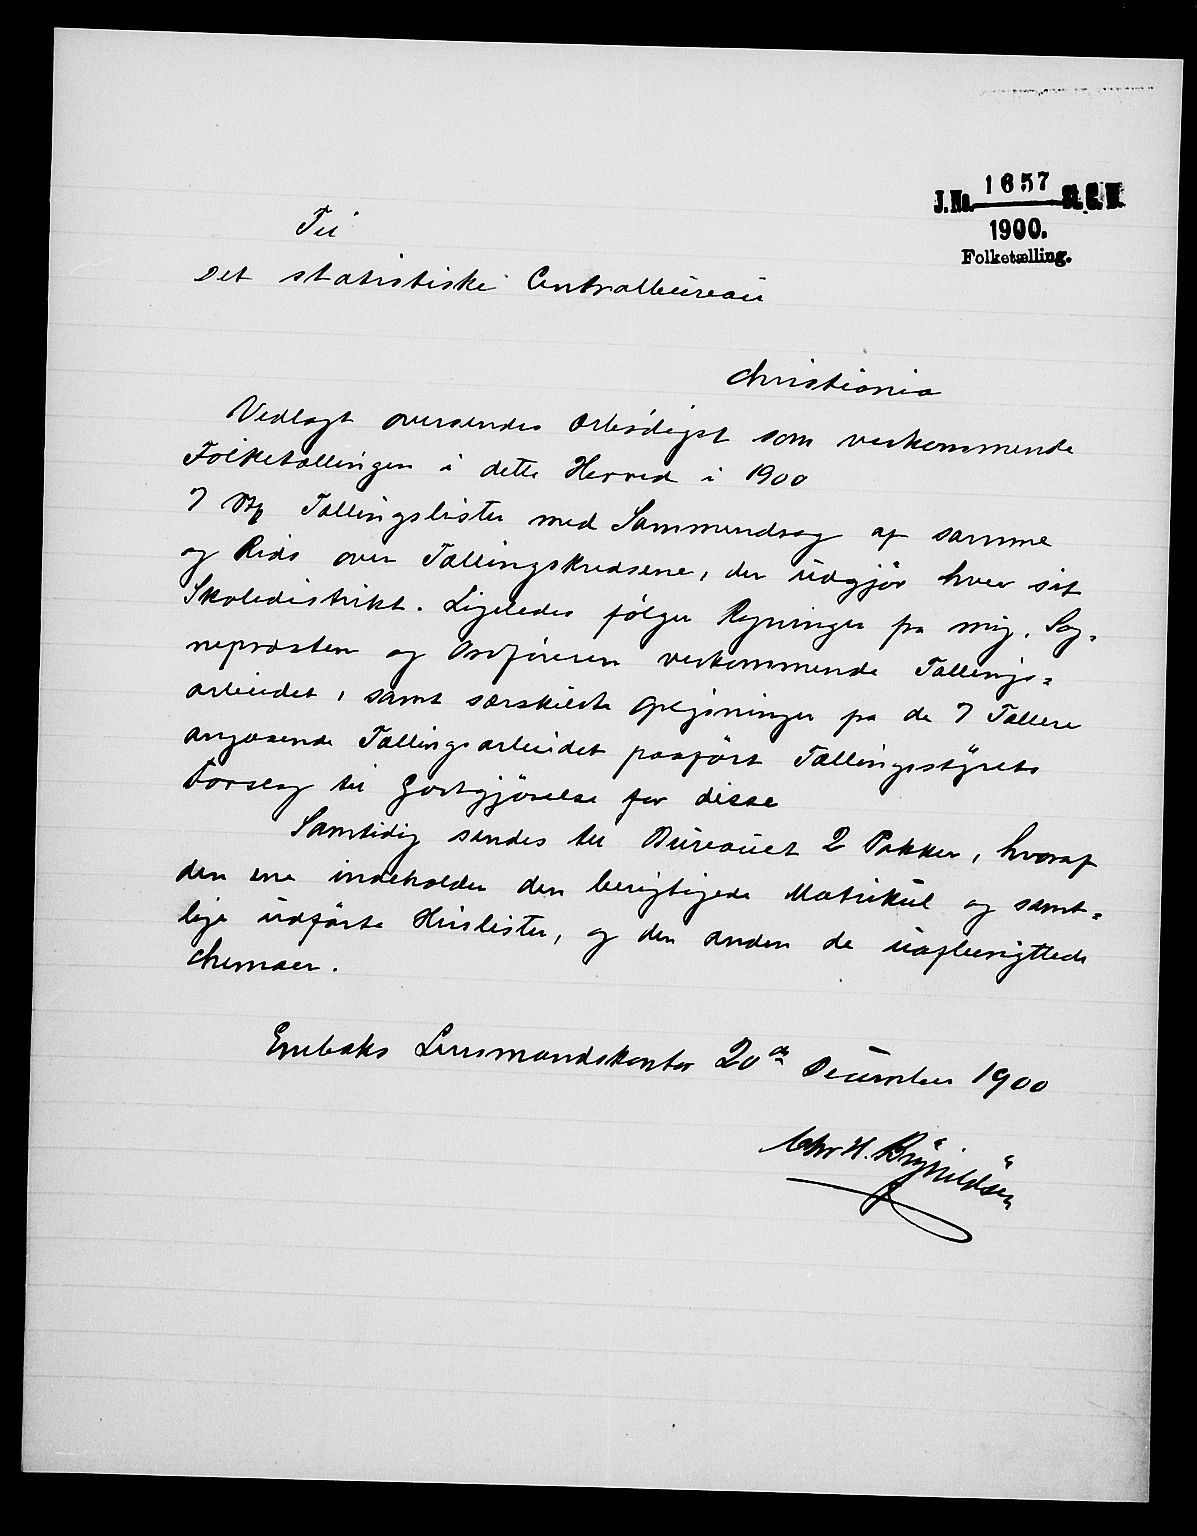 J.No. 1657 St. C. B.
1900.
Folketælling.
Til
Det statistiske Centralbureau
Christiania
Vedlagt oversendes ærbødigst som vedkommende
Folketællingen i dette Herred i 1900
7 Stk Tællingslister med Sammendrag af samme
og Rids over Tællingskredsene, der udgjør hver sit
Skoledistrikt. Ligeledes følger Regninger fra mig, Sog=
nepræsten og Ordføreren vedkommende Tællings=
arbeidet, samt særskildte Opgjøringer fra de 7 Tællere
angaaende Tællingsarbeidet paaført Tællingsstyrets
Forslag til Godtgjørelse for disse
Samtidig sendes til Bureauet 2 Pakker, hvoraf
den ene indeholder den berigtigede Matrikul og samt=
lige udførte Huslister, og den anden de uafbenyttede
Chemaer.
Enebaks Lensmandskontor 20de December 1900
Chr H. Brynildsen